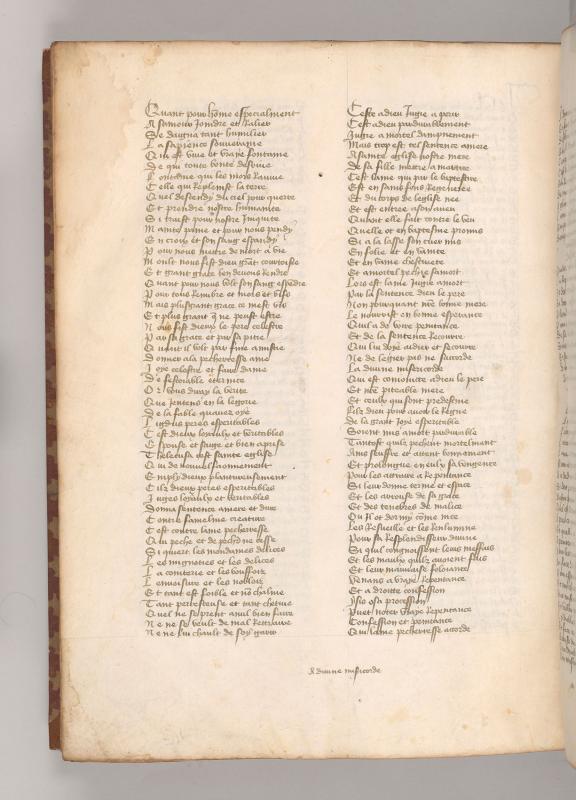 Quant pour home especialment
A samour joindre et ralier
Se daigna tant humilier
La sapience souveraine
Qui est vive et vraye fontaine
De qui toute bonte desrive
Fontaine qui les mors ravive
Celle qui replenist la terre
Quel descendy du ciel pour querre
Et prendre nostre humanite
Si traist pour nostre iniquite
Mainte paine et pour nous pendy
En croix et son sang espandy
Pour nous mettre de mort a vie
Moult nous fist dieu grant courtoisie
Et grant grace len devons rendre
Quant pour nous volt son sang espendre
Pour tous reimbre et mors et vifs
Mais plus grant grace ce mest vis
Et plus grant que ne peust estre
Nous fist dieux le pere celestre
Par sa grace et par sa pitie
Quant il volt par fine amistie
Donner a la pecherresse ame
Joye celestre et faire dame
De sestorable eternite
Or vous diray la verite
Que jentens en la legorie
De la fable quavez oye
Jugdus peres esperitables
Cest dieux loyauls et veritables
Espouse et sauge et bien aprise
Theletusa cest sainte eglise
Qui de nouvel saonnement
Emply dieux plantureusement
Cilz dieux peres esperitables
Juges loyauls et veritables
Donna sentence amere et dure
Contre samelme creature
Cest contre lame pecherresse
Qui peche et de pechier ne cesse
Si quiert les mondaines delices
Les mignoties et les delices
La cointerie et les boissons
Lenvoisure et les
Et tant est foible et non chalant
Tant pereceuse et tant chetive
Quel ne se prent a nul bien faire
Ne ne se veult de mal retraire
Ne ne lui chault de soy garir
Ceste a dieu jugie a perir
Cest a dieu pardurablement
Jugie a mortel dampnement
Mais trop est cel sentence amere
A sainte eglise nostre mere
De sa fille mettre a martire
Cest lame qui par le baptesme
Est en sains fons regeneree
Et du corps de leglise nee
Et est entree a son aveu
Quant elle fait contre le veu
Quelle ot en baptesme promis
Si a la lasse son cuer mis
En folie et en vanite
Et en vaine chestivete
Et a mortel pechie samort
Lors est lame jugie a mort
Par la sentence dieu le pere
Non pourquant nostre bonne mere
Le nourrist en bonne esperance
Quil a de voire penitance
Et de la sentence recourre
Qui lui doye aidier et secourre
Ne de legier pas ne sacorde
La divine misericorde
Qui est conioincte a dieu le pere
Et nostre piteable mere
Et ceulx qui sont predesine
Cilz dieu pour avoir le regne
De la grant joye esperitable
Soient mis a mort pardurable
Tantost quilz pechent mortelment
Ains seuffre et atent bonnement
Et prolongue en eulx sa vengence
Pour les attraire a repentance
Si leur donne terme et espace
Et les arrouse de sa grace
Et des tenebres de malice
Ou il ot dormy comme nice
Les resueille et les enlumine
Pour sa resplendisseur divine
Si quil congnoissent leurs meffais
Et les maulx quilz avoient fais
Et leur mauvaise
Venans a vraye repentance
Et a droitte confession
Ysis o sa procession
Puet noter vraye repentance
Confession et penitance
Qui lame pecherresse acorde
A divine misericorde